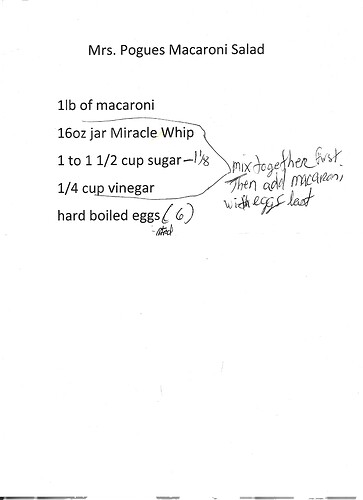 Mrs. Pogues Macaroni Salad
1lb of macaroni
16oz jar Miracle Whip
1 to 1 1/2 cup sugar – 1 1/8
1/4 cup vinegar
hard boiled eggs (6)
mix together first.
Then add macaroni,
with eggs last